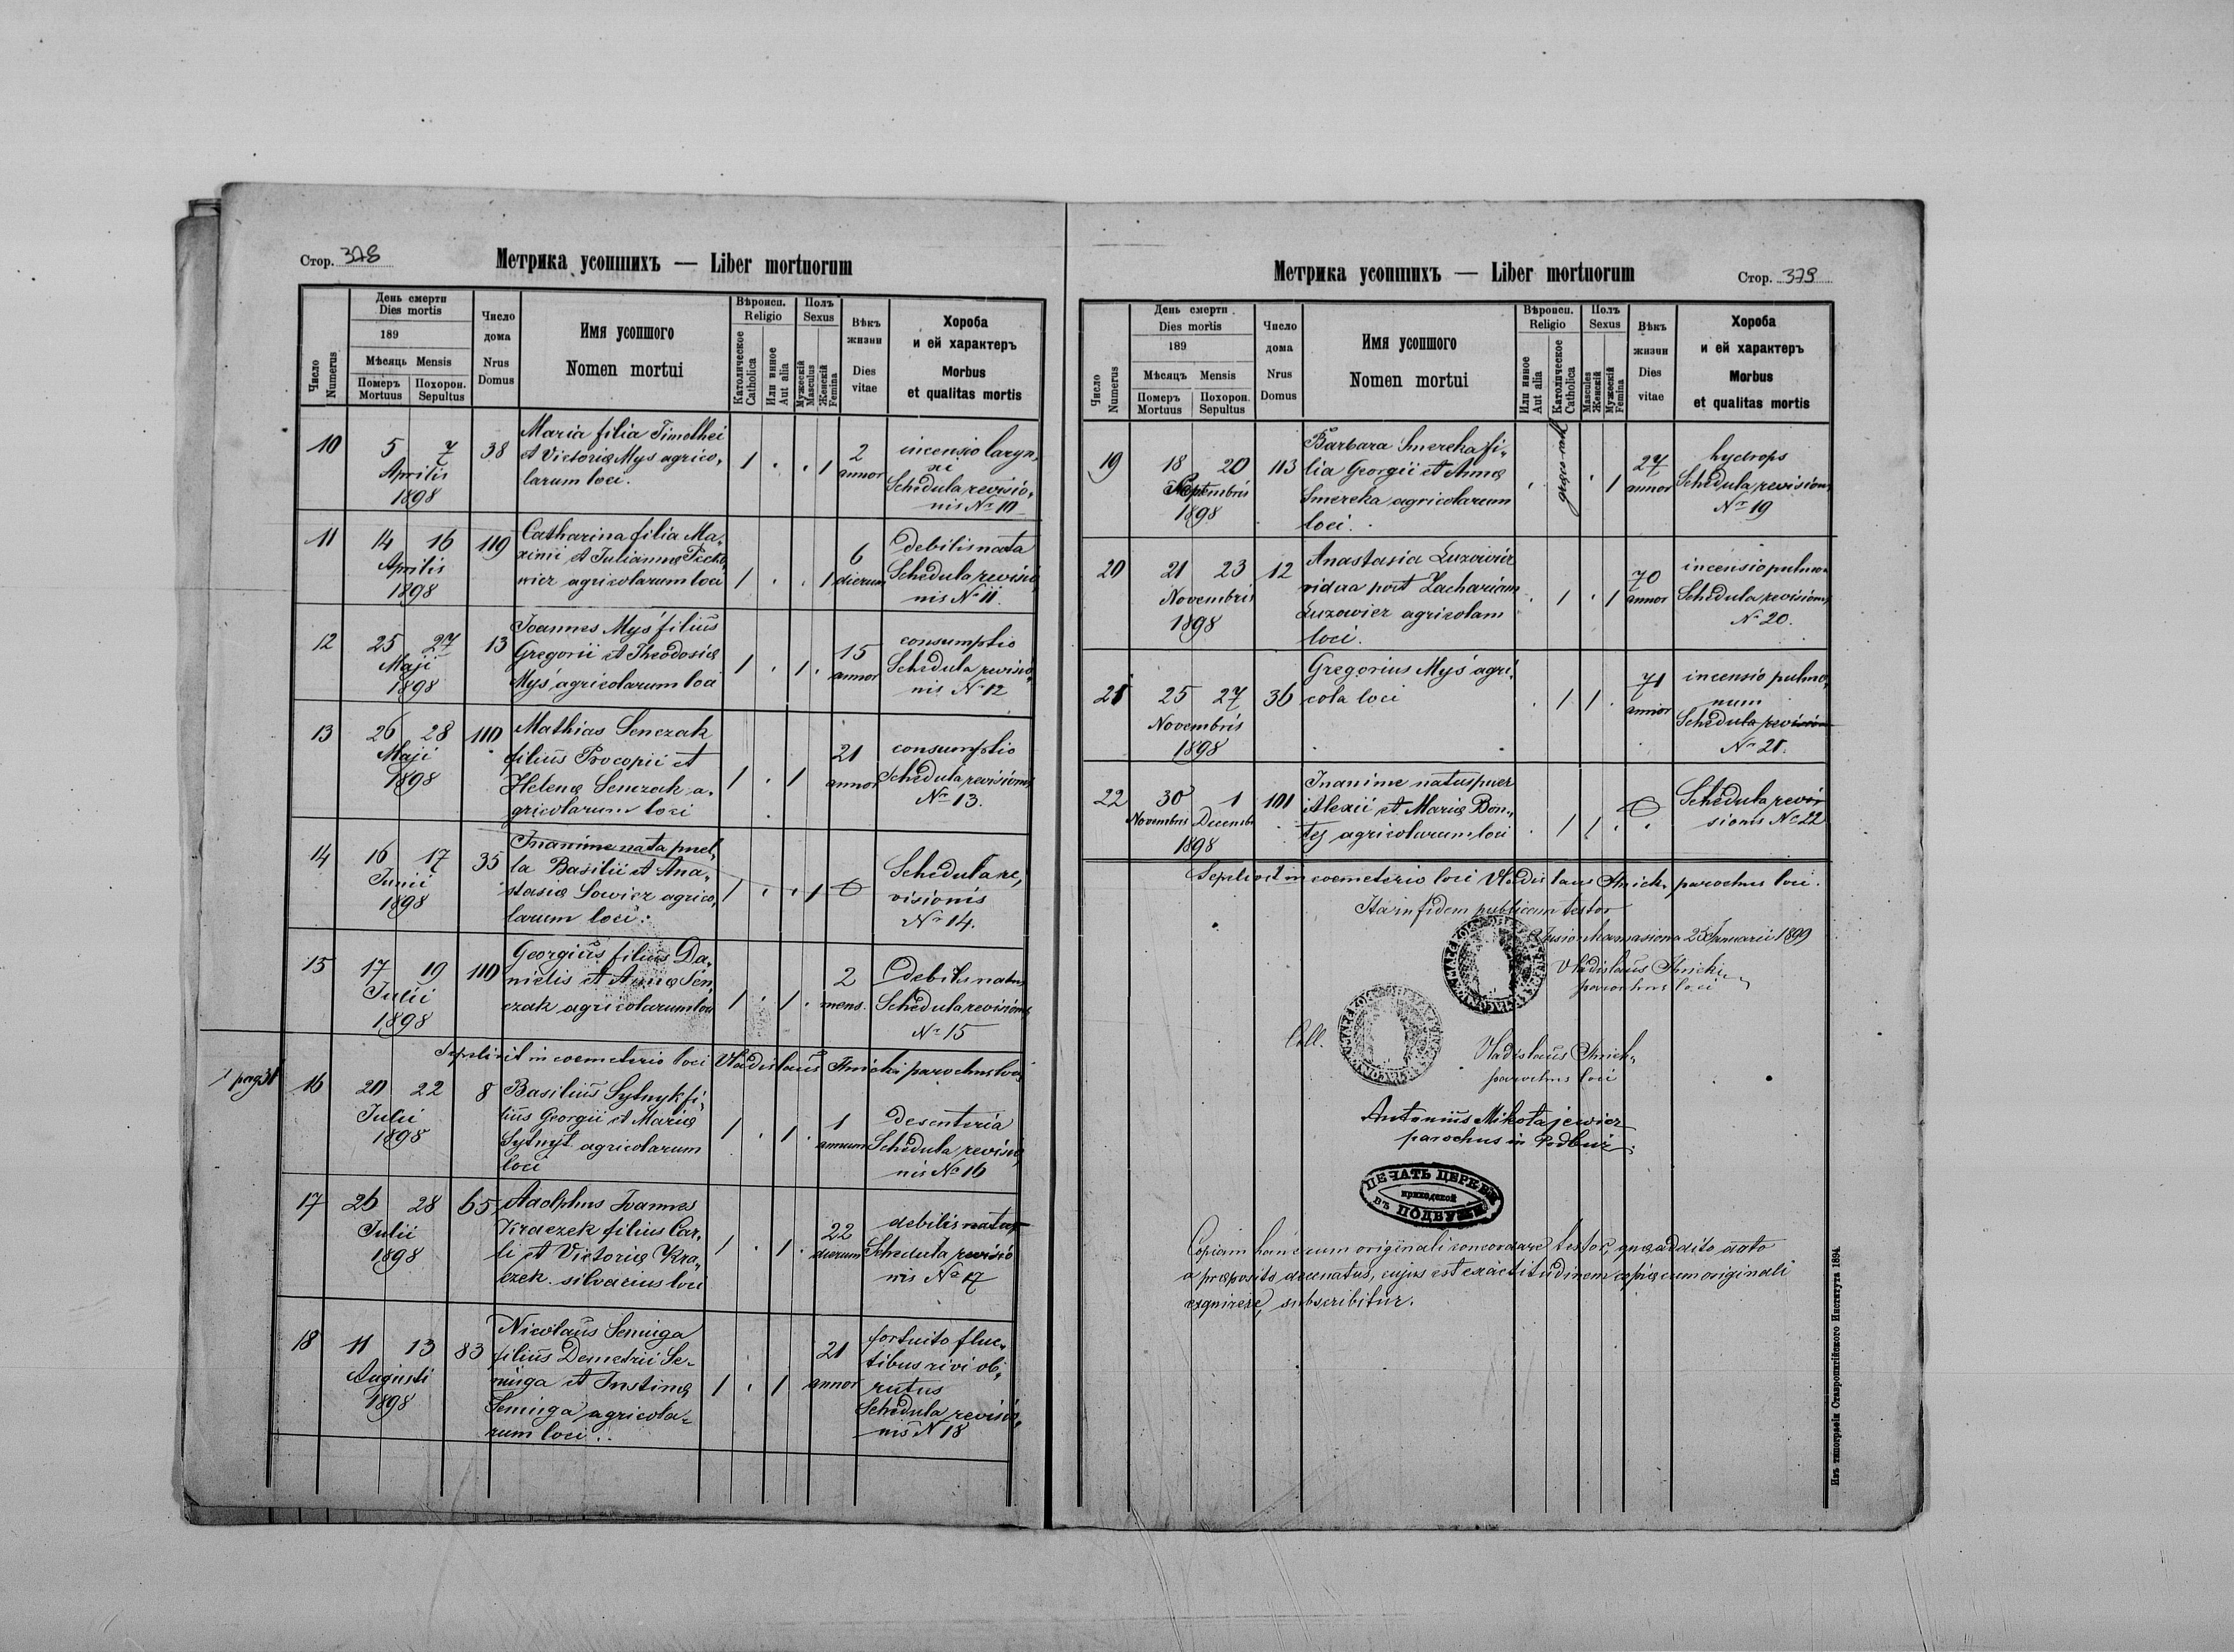 Стор. 378
Метрика усопшихъ — Liber mortuorum
Число
Numerus
День смерти
Dies mortis
189
Мѣсяць Mensis
Померъ
Mortuus
Похорон.
Sepultus
Число
дома
Nrus
Domus
Имя усопшого
Nomen mortui
Вѣроисп.
Religio
Католическое
Catholica
Или инное
Aut alia
Полъ
Sexus
Мужескій
Masculus
Женскій
Femina
Вѣкъ
жизни
Dies
vitae
Хороба
и ей характеръ
Morbus
et qualitas mortis
10
5 7
Aprilis
1898
38
Maria filia Timothei
et Victoriæ Mys agrico,
larum loci.
1 . . 1
2
annor
incensio laryn,
xi
Schedula revisio,
nis No 10
11
14 16
Aprilis
1898
119
Catharina filia Ma,
ximi et Julianna
agricolarum loci
1 . . 1
6
dierum
debilis nata
Schedula revisio,
nis No 11.
12
25 27
Maji
1898
13
Joannes Myś filius
Gregorii et Theodosiæ
Myś agricolarum loci
1 . 1 .
15
annor
consumptio
Schedula revisio,
nis No 12
13
26 28
Maji
1898
110
Mathias Senczak
filius Procopii et
Helenæ Senczak a,
gricolarum loci
1 . 1
21
annor
consumptio
Schedula revisionis
No 13.
14
16 17
Junii
1898
35
Inanime nata puel,
la Basilii et Ana,
stasiæ Sowicz agrico,
larum loci.
1 . . 1
Schedula re,
visionis
No 14.
15
17 19
Julii
1898
110
Georgius filius Da,
nielis et Annæ Sen,
czak agricolarum loci
1 . 1 .
2
mens.
Debilis natus
Schedula revisionis
No 15
Sepelivit in coemeterio loci Vladislaus parochus loci
16
20 22
Julii
1898
8
Basilius Sytnyk fi,
lius Georgii et Mariæ
agricolarum
loci
1 . 1 .
1
annum
desenteria
Schedula revisio,
nis No 16
17
26 28
Julii
1898
65
Adolphus Joannes
Kraczek filius Car,
li et Victoriæ Kra,
czek silvacius loci
1 . 1 .
22
dierum
debilis natus
Schedula revisio
nis No 17
18
11 13
Augusti
1898
83
Nicolaus Senuiga
filius Demetrii Se,
nuiga et Justinæ
Senuiga agricola,
rum loci.
1 . 1
21
annor
fortuito fluc,
tibus rivi ob,
rutus
Schedula revisio,
nis N 18
Метрика усопшихъ — Liber mortuorum
Стор. 379
Число
Numerus
День смерти
Dies mortis
189
Мѣсяцъ Mensis
Померъ
Mortuus
Похорон.
Sepultus
Число
дома
Nrus
Domus
Имя усопшого
Nomen mortui
Вѣроисп.
Religio
Или инное
Aut alia
Католическое
Catholica
Полъ
Sexus
Masculus
Женскій
Мужескій
Femina
Вѣкъ
жизни
Dies
vitae
Хороба
и ей характеръ
Morbus
et qualitas mortis
19
18 20
Septembris
1898
113
Barbara Smereka fi,
lia Georgii et Annæ
Smereka agricolarum
loci.
. . 1
27
annor
hydrops
Schedula revisionis
No 19
20
21 23
Novembris
1898
12
Anastasia Luzowicz
vidua post Zachariam
Luzowicz agricolam
loci.
. 1 . 1
70
annor
incensio pulmo
Schedula revisionis
No 20.
21
25 27
Novembris
1898
36
Gregorius Myś agri,
cola loci
. 1 1 .
71
annor
incensio pulmo,
num
Schedula revision
No 21.
22
30 1
Novembris Decembr
1898
101
Inanime natus puer
Alexii et Mariæ Bon,
agricolarum loci
. 1 1 .
Schedula revi
sionis No 22
Sepelivit in coemeterio loci Vladislaus parochus loci.
Ita in fidem publicam testor
25 Januarii 1899
Vladislaus
parochus loci
Coll.
Vladislaus
parochus loci
Antonius Mikołajewicz
parochus in Podbuż
ПЕЧАТЬ ЦЕРКВИ
приходской
въ ПОДБУЖИ
Copiam hanc cum originali concordare testor, quæ addito dato
a præposito decanatus, cujus est exactitudinem copiæ cum originali
exquirere, subscribitur.
Изъ типографіи Ставропигійского Института 1894.